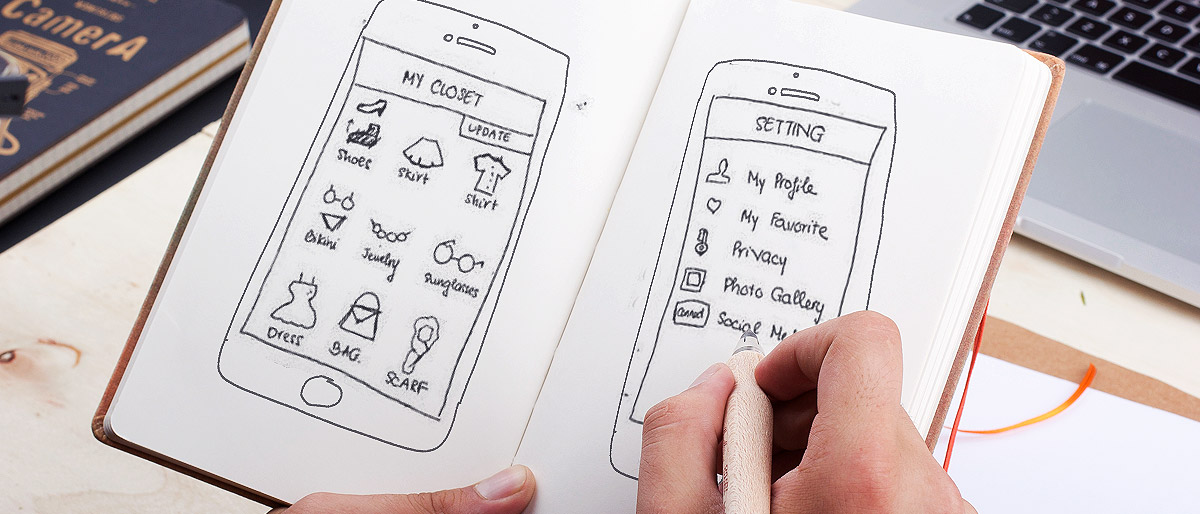 CamerA
MY CLOSET
UPDATE
Shoes
skirt
shirt
Bikini
Jewelry
Sunglasses
DRESS
BAG.
SCARF
SETTING
My Profile
My Favorite
Privacy
Photo Gallery
Social Me